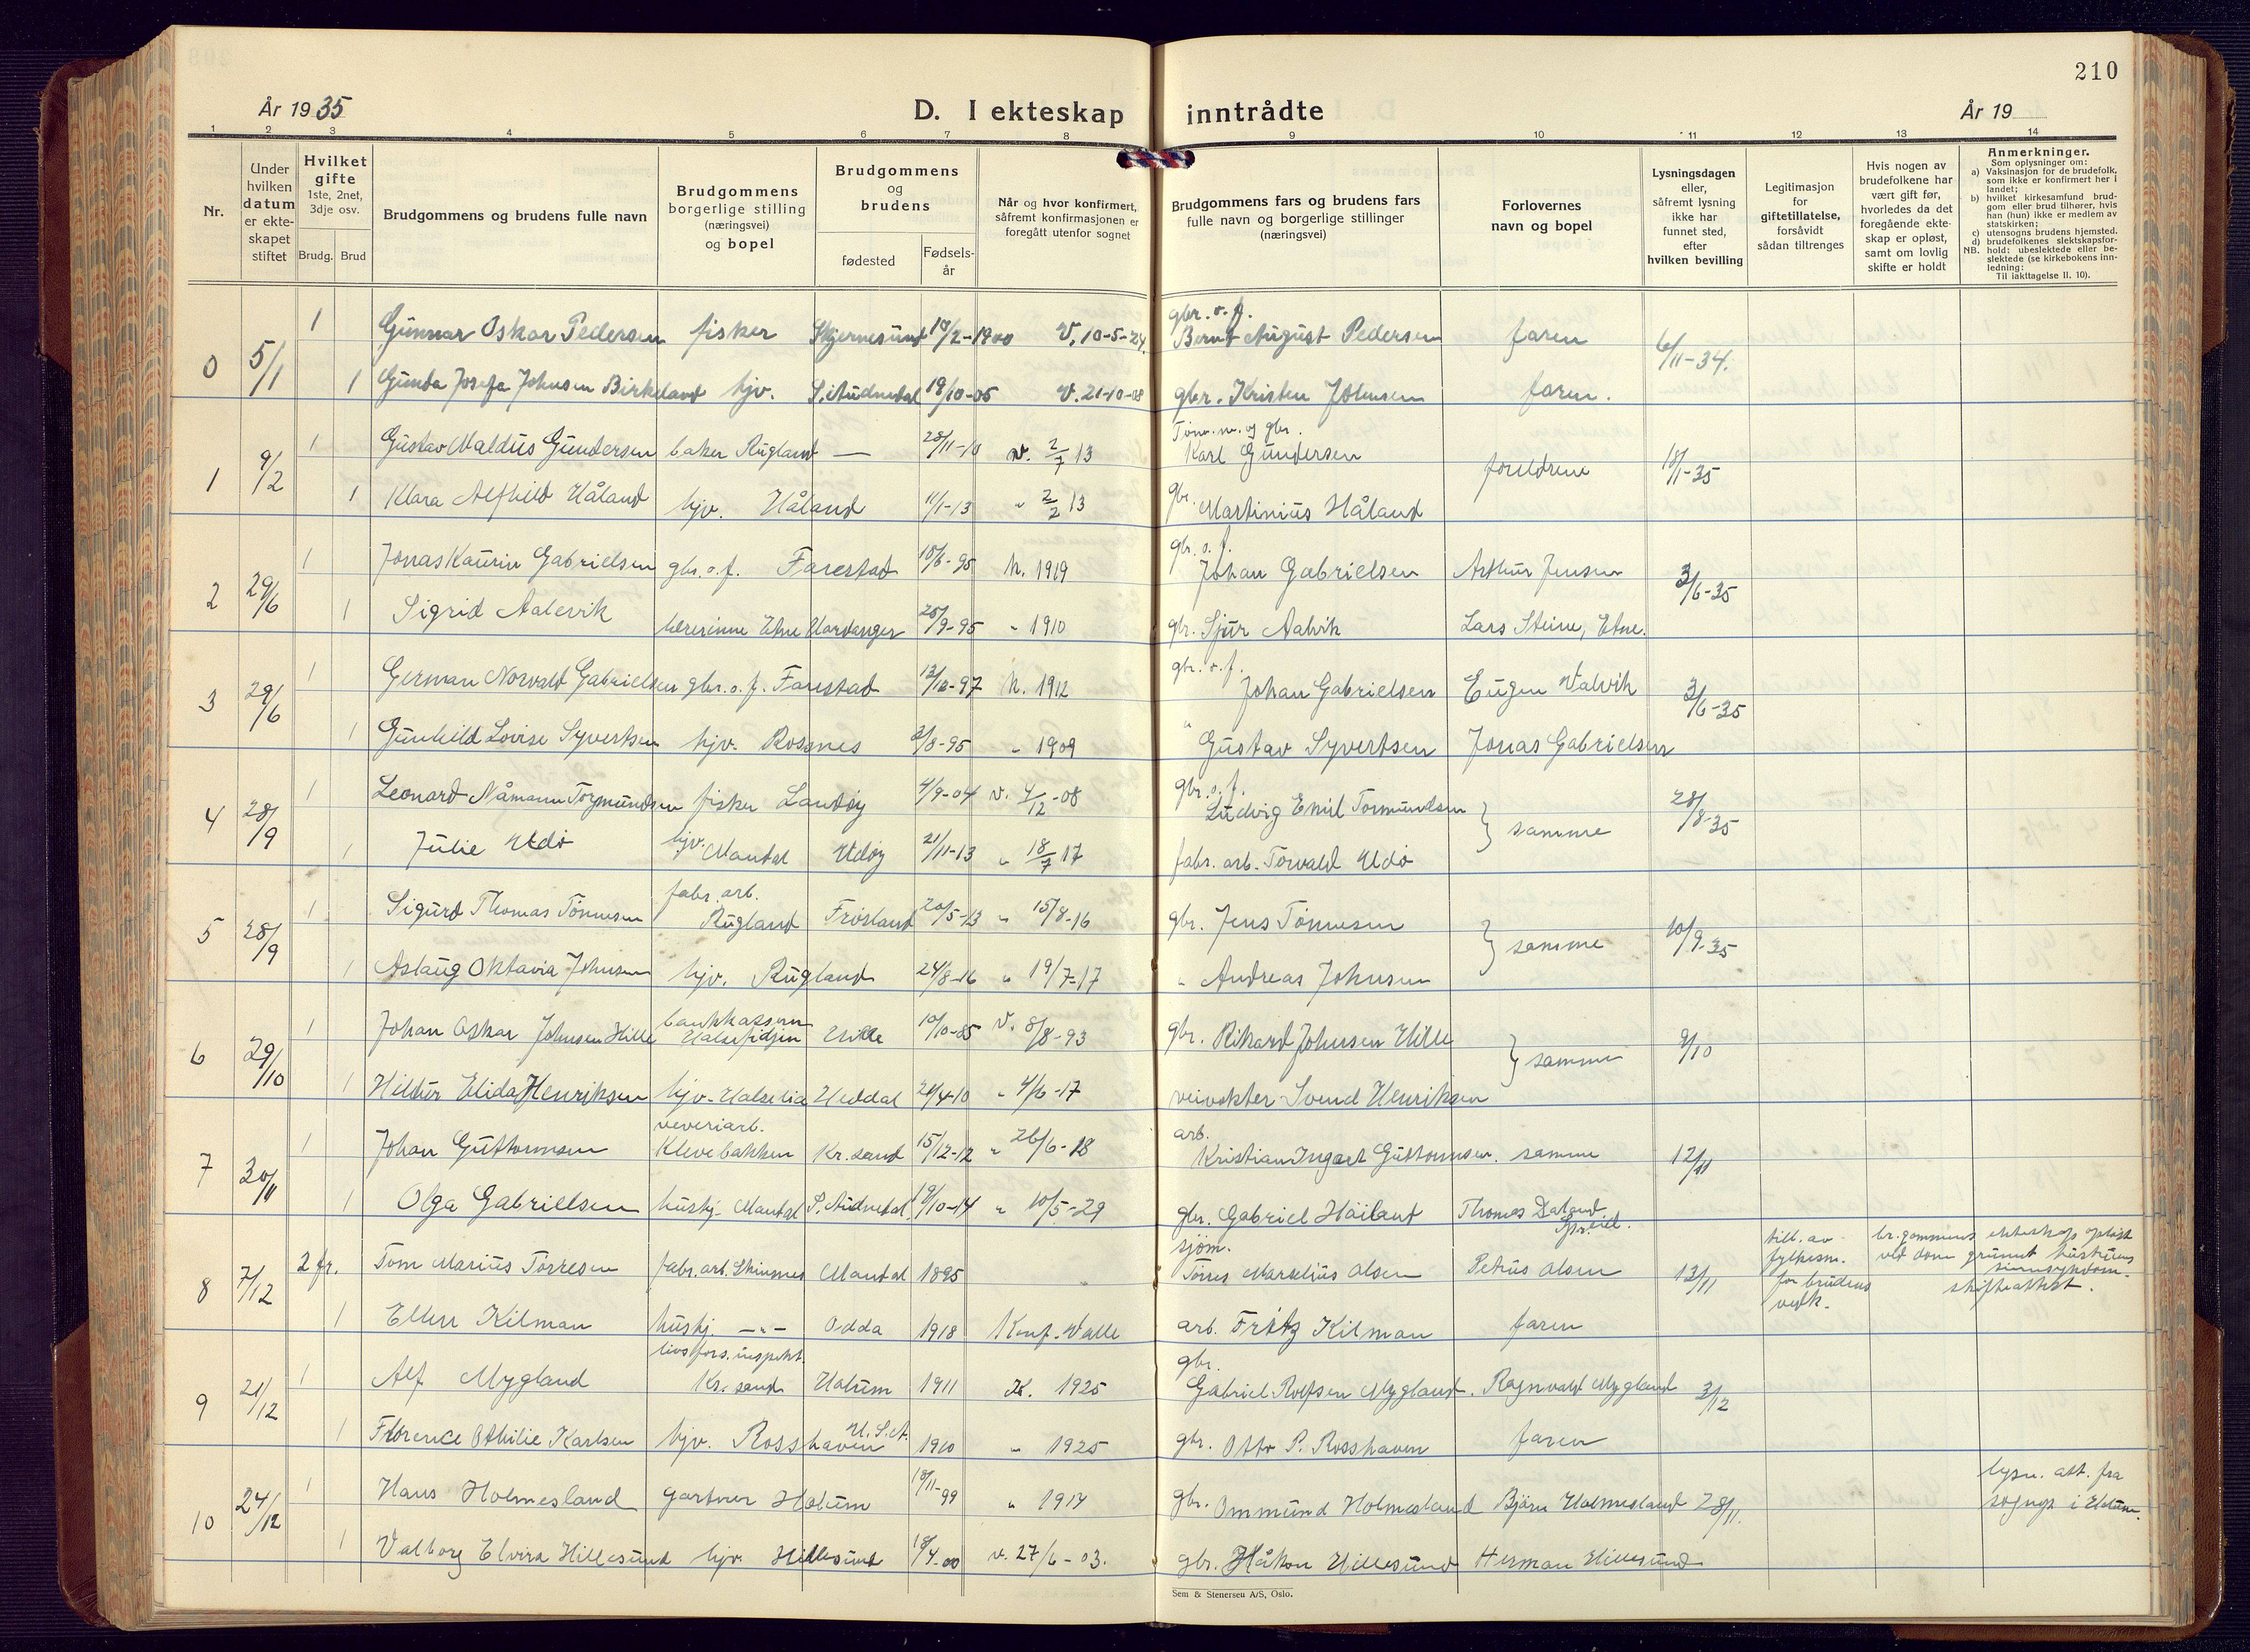 210
År 1935
D. I ekteskap inntrådte
År 19
1 2 3 4 5 6 7 8 9 10 11 12 13 14
Nr.
Under hvilken datum er ekteskapet stiftet
Hvilket gifte 1ste, 2net, 3dje osv.
Brudg. Brud
Brudgommens og brudens fulle navn
Brudgommens borgerlige stilling (næringsvei) og bopel
Brudgommens og brudens
fødested
Fødselsår
Når og hvor konfirmert, såfremt konfirmasjonen er foregått utenfor sognet
Brudgommens fars og brudens fars fulle navn og borgerlige stillinger (næringsvei)
Forlovernes navn og bopel
Lysningsdagen eller, såfremt lysning ikke har funnet sted, efter hvilken bevilling
Legitimasjon for giftetillatelse, forsåvidt sådan tiltrenges
Hvis nogen av brudefolkene har vært gift før, hvorledes da det foregående ekteskap er opløst, samt om lovlig skifte er holdt
Anmerkninger.
Som oplysninger om:
a) Vaksinasjon for de brudefolk, som ikke er konfirmert her i landet;
b) hvilket kirkesamfund brudgom eller brud tilhører, hvis han (hun) ikke er medlem av statskirken;
c) utensogns brudens hjemsted.
d) brudefolkenes slektskapsforhold: ubeslektede eller beslektede (se kirkebokens innledning:
NB.
Til iakttagelse II. 10).
0 5/1 1 Gunnar Oskar Pedersen fisker Skjernesund 10/2-1900 v. 10-5-24. gbr. o. f. Bernt August Pedersen faren 6/11-34.
1 Gunda Josefa Johnsen Birkeland hjv. S. Audnedal 19/10-05 v. 21-10-08 gbr. Kristen Johnsen faren.
1 9/2 1 Gustav Valdus Gundersen baker Rugland — 28/11-10 v. 2/7 13 Tønn.m. og gbr. Karl Gundersen foreldrene 18/1-35
1 Klara Alfhild Håland hjv. Håland 11/1-13 " 2/2 13 gbr. Martinius Håland
2 29/6 1 Jonas Kaurin Gabrielsen gbr. o. f. Farestad 10/6-95 h. 1919 gbr. o. f. Johan Gabrielsen Arthur Jensen 3/6-35
1 Sigrid Aalvik lærerinne Etne Hardanger 25/9-95 " 1910 gbr. Sjur Aalvik Lars Steine, Etne.
3 29/6 1 German Norvald Gabrielsen gbr. o. f. Farestad 13/12-97 h. 1912 gbr. o. f. Johan Gabrielsen Eugen Valvik 3/6-35
1 Gunhild Lovise Syvertsen hjv. Rossnes 2/8-95 " 1909 " Gustav Syvertsen Jonas Gabrielsen
4 28/9 1 Leonard Nåmann Tormundsen fisker Landøy 4/9-04 v. 4/12-08 gbr. o. f. Ludvig Emil Tormundsen } samme 28/8-35
1 Julie Udø hjv. Mandal Udøy 21/11-13 " 18/7 17 fabr. arb. Torvald Udø
5 28/9 1 Sigurd Thomas Tønnesen fabr. arb. Rugland Frøsland 20/5-13 " 15/8-16 gbr. Jens Tønnesen } samme 10/9-35
1 Aslaug Oktavia Johnsen hjv. Rugland 24/8-16 " 19/7-17 " Andreas Johnsen
6 29/10 1 Johan Oskar Johnsen Hille bankkasserer Halsefidjen Hille 10/10-85 v. 8/8-93 gbr. Rikard Johnsen Hille } samme 9/10
1 Hildur Elida Henriksen hjv. Halselia Heddal 24/4-10 " 4/6-17 veivokter Svend Henriksen
7 30/11 1 Johan Guttormsen veveriarb. Klevebakken Kr. sand 15/12-12 " 26/6-18 arb. Kristian Ingart Guttormsen. samme 12/11
1 Olga Gabrielsen hushj. Mandal S. Audnedal 19/10-14 " 10/5-29 gbr. Gabriel Høiland Thomas Daland
8 7/12 2 fr. Tom Marius Tørresen fabr. arb. Skinsnes Mandal 1895 sjøm. Tørres Marselius Olsen Petrus Olsen 13/11 till. av fylkesm. for brudens vedk. br. gommens ekteskap opløst ved dom grunnet hustruens sinnssykdom. skifteattest.
1 Ellen Kilman hushj. —"— Odda 1918 Konf. Valle arb. Fritz Kilman faren
9 21/12 1 Alf Mygland livsfors. inspekt. Kr. sand Holum 1911 H. 1925 gbr. Gabriel Rolfsen Mygland. Ragnvald Mygland 3/12
1 Florence Othilie Karlsen hjv. Rosshaven U.S.A. 1910 " 1925 gbr. Otto P. Rosshaven faren
10 24/12 1 Hans Holmesland gartner Holum 18/11-99 " 1914 gbr. Ommund Holmesland Bjørn Holmesland 28/11. lysn. att. fra sognepr. i Holum.
1 Valborg Elvira Hillesund hjv. Hillesund 18/4-00 v. 27/6-03. gbr. Håkon Hillesund Herman Hillesund
Sem & Stenersen A/S, Oslo.